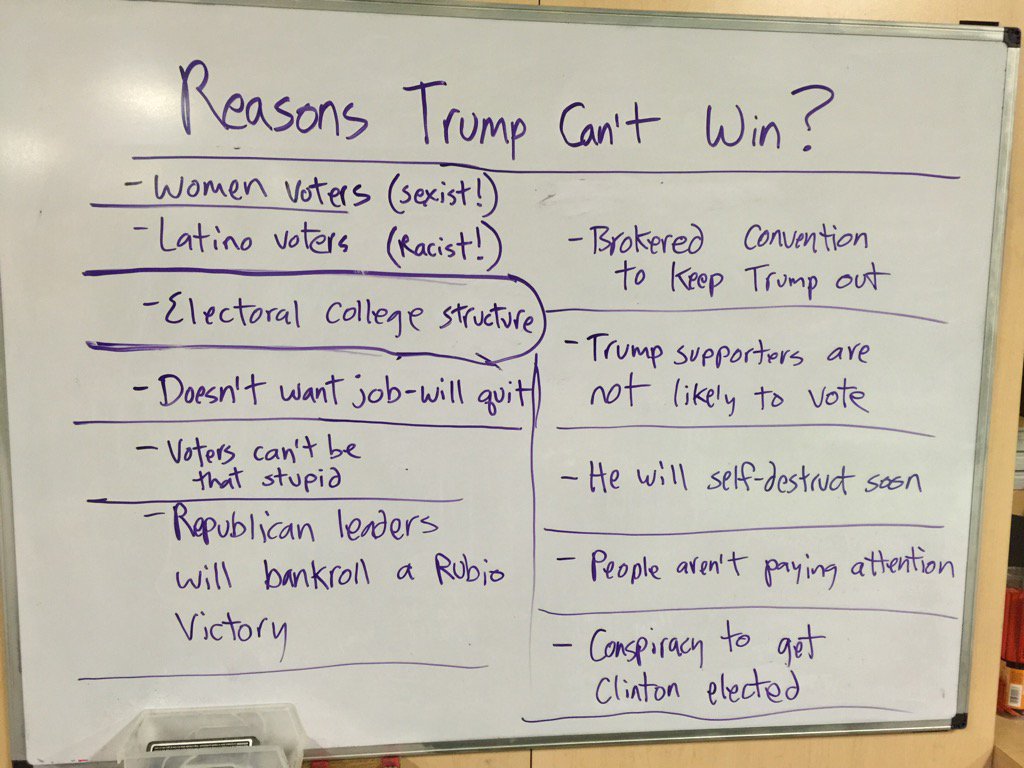 Reasons Trump Can't Win?
- Women voters (sexist!)
- Latino voters (Racist!)
- Electoral college structure
- Doesn't want job-will quit
- Voters can't be
that stupid
- Republican leaders
will bankroll a Rubio
Victory
- Brokered Convention
to keep Trump out
- Trump supporters are
not likely to vote
- He will self-destruct soon
- People aren't paying attention
- Conspiracy to get
Clinton elected